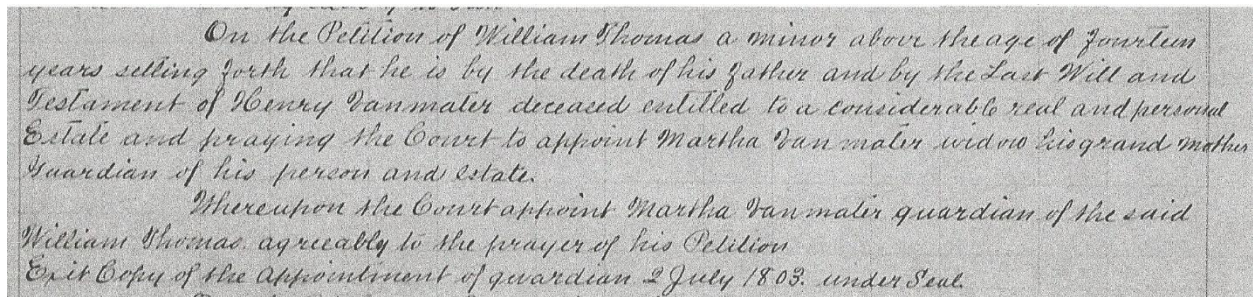 On the Petition of William Thomas a minor above the age of Fourteen
years setting forth that he is by the death of his Father and by the Last Will and
Testament of Henry Vanmater deceased entitled to a considerable real and personal
Estate and praying the Court to appoint Martha Van mater widow his grand mother
Guardian of his person and estate.
Whereupon the Court appoint Martha Vanmater guardian of the said
William Thomas agreeably to the prayer of his Petition
Exit Copy of the Appointment of guardian 2 July 1803. under Seal.